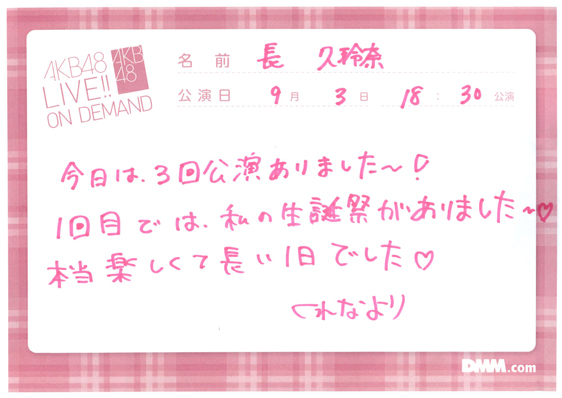 AKB48
LIVE!!
ON DEMAND
AKB
48
名前 長 久玲奈
公演日 9月 3日 18:30 公演
今日は、3回公演ありました〜!
1回目では、私の生誕祭がありました〜♡
本当楽しくて長い1日でした♡
くれなより
DMM.com